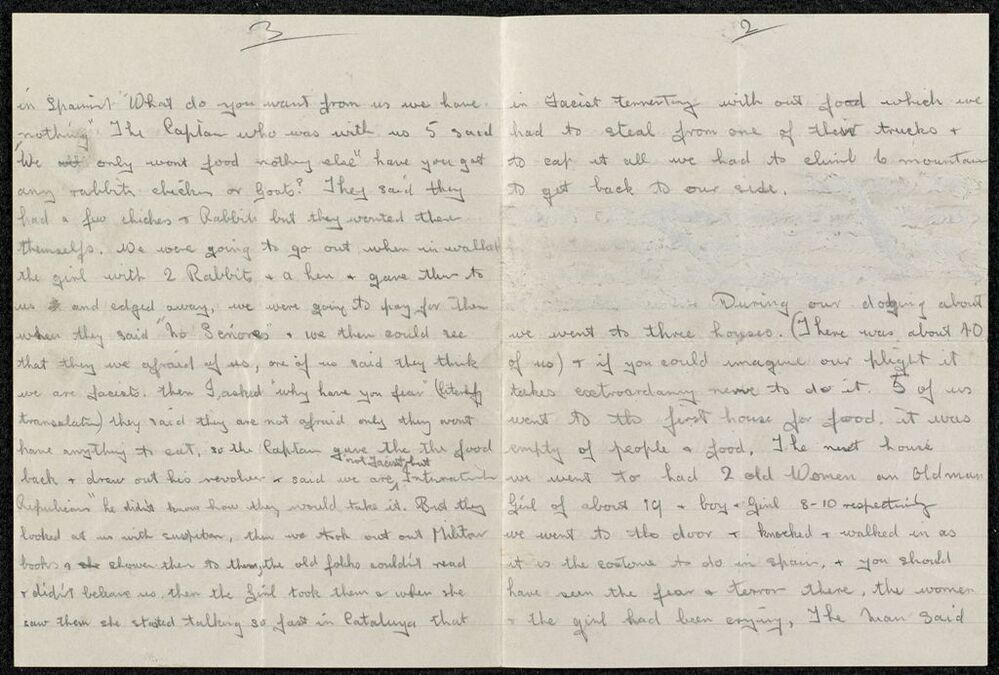 2
in Facist terrertory with out food which we
had to steal from one of their trucks +
to cap it all we had to climb 6 mountain
to get back to our side.
During our dodging about
we went to three houses. (There was about 40
of us) + if you could imagine our plight it
takes exetroardany nerve to do it. 5 of us
went to the first house for food. it was
empty of people & food, The next house
we went to had 2 old Women an Old man
Girl of about 19 + boy + Girl 8-10 respectivly
we went to the door + knocked + walked in as
it is the costome to do in spain, + you should
have seen the fear + terror there, the women
+ the girl had been crying, The Man said
3
in Spanish "What do you want from us we have
nothing" The Captan who was with us 5 said
"We only wont food nothing else" have you got
any rabbits chicken or Goat? They said they
had a few chickes + Rabbits but they wonted them
themselfs. We were going to go out when in walked
the girl with 2 Rabbits + a hen + gave them to
us and edged away, we were going to pay for them
when they said "No Señores" + we then could see
that they we afraid of us, one of us said they think
we are facists. then I asked "why have you fear" (literly
translation) they said they are not afraid only they wont
have anything to eat, so the Captan gave the the food
back + drew out his revolver + said we are not Facist, but Internation
Republicans" he didn't know how they would take it. But they
looked at us with suspition, then we took out out Militar
books & shown them to them, the old folks couldn't read
+ didn't beleave us, then the Girl took them & when she
saw them she started talking so fast in Cataluya that